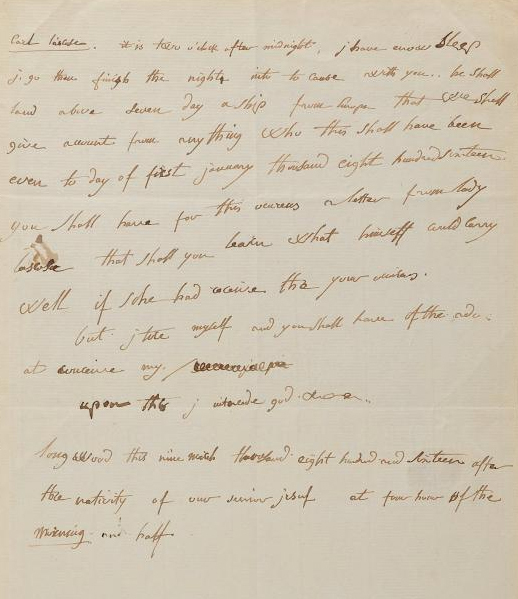 Count lascase. it is tow o'clock after midnight, j have enow sleep
j go then finish the night into to cause with you. he shall
land above seven day a ship from Europe that we shall
give account from anything who this shall have been
even to day of first january thousand eight hundred sixteen.
you shall have for this ocurens a letter from lady
lascase that shall you learn what himself could carry
well if she had conceive the your occurens.
but j tire myself and you shall have of the ado:
at conceive my
upon this j intercede god.
longwood this nine mach thousand eight hundred and sixteen after
the nativity of our savior jesus at four hour of the
morning and half